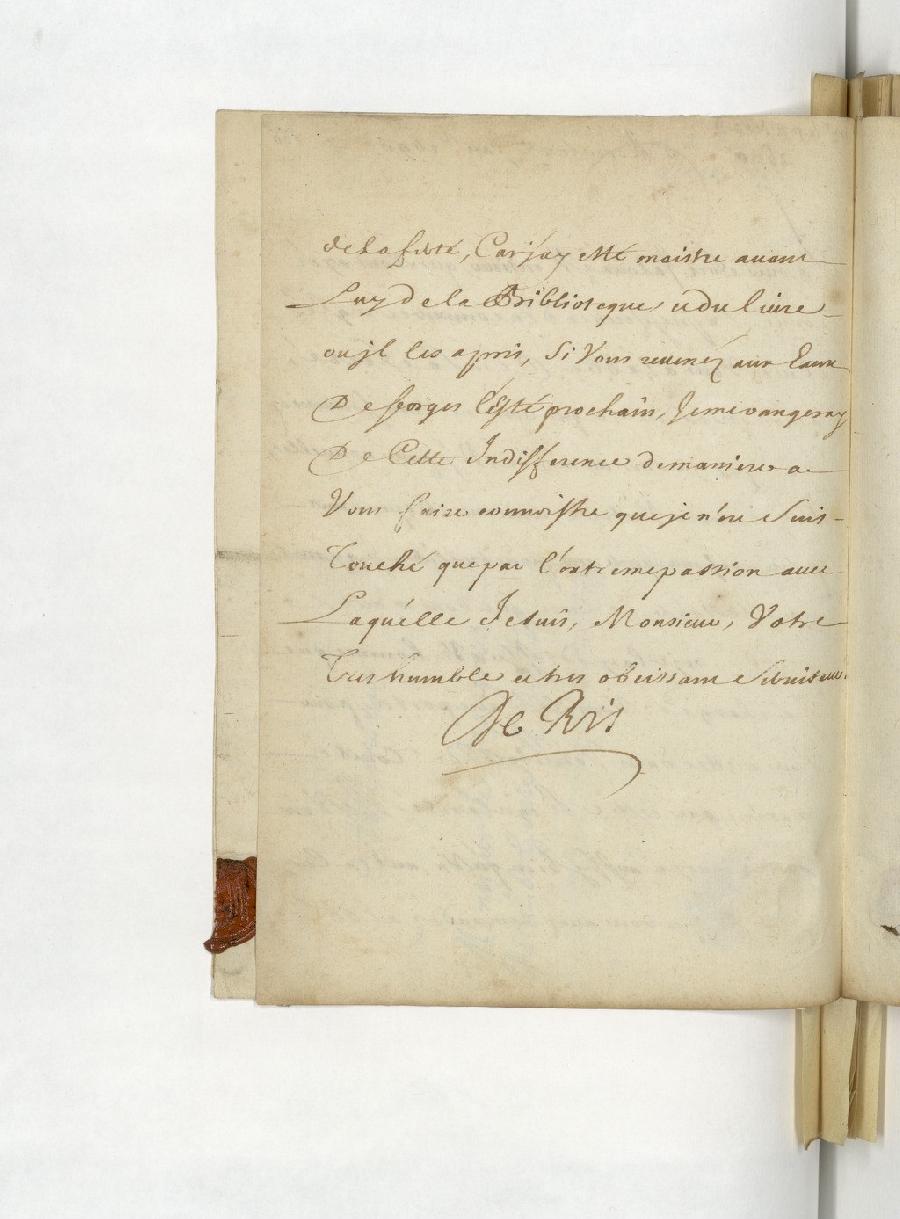 de la fierté, Car j'ay esté maistre auant
Luy de la Biblioteque et du liure
ou jl les a pris, Si Vous reuenéz aux Eaux
De forges l'Esté prochain, Je me vangeray
De Cette Indifference de maniere a
Vous faire connoistre que je n'en suis
Touché que par l'extreme passion auec
Laquélle Je suis, Monsieur, Votre
Tres humble et tres obeissant seruiteur.
De Ris